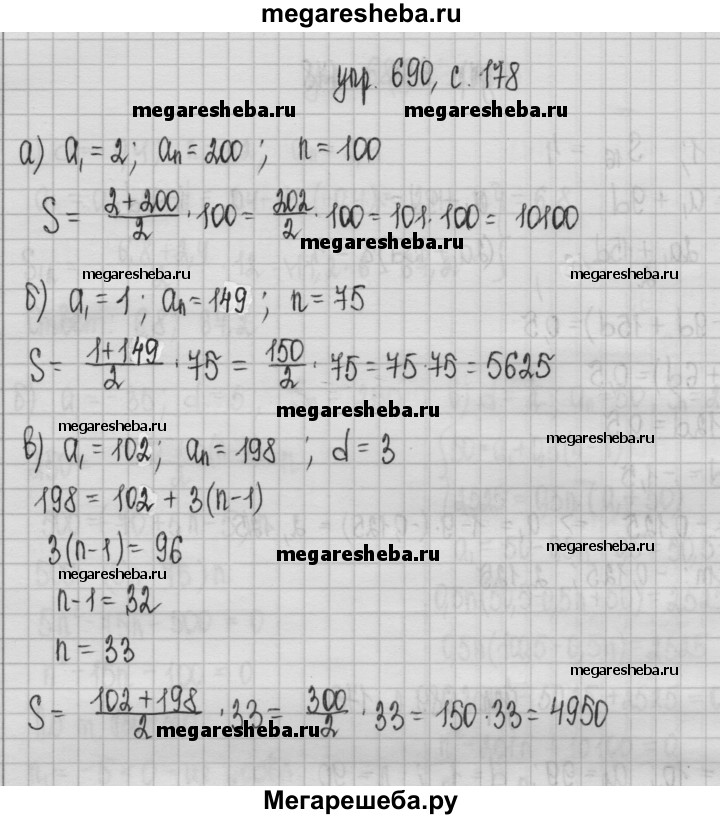 megaresheba.ru
упр. 690, с. 178
megaresheba.ru megaresheba.ru
а) a₁ = 2; aₙ = 200 ; n = 100
S = (2+200)/2 · 100 = 202/2 · 100 = 101 · 100 = 10100
megaresheba.ru
megaresheba.ru
б) a₁ = 1 ; aₙ = 149 ; n = 75
S = (1+149)/2 · 75 = 150/2 · 75 = 75 · 75 = 5625
megaresheba.ru
megaresheba.ru megaresheba.ru
в) a₁ = 102; aₙ = 198 ; d = 3
198 = 102 + 3(n-1)
3(n-1) = 96
megaresheba.ru megaresheba.ru
megaresheba.ru
n-1 = 32
n = 33
megaresheba.ru
S = (102+198)/2 · 33 = 300/2 · 33 = 150 · 33 = 4950
megaresheba.ru megaresheba.ru
Мегарешеба.ру